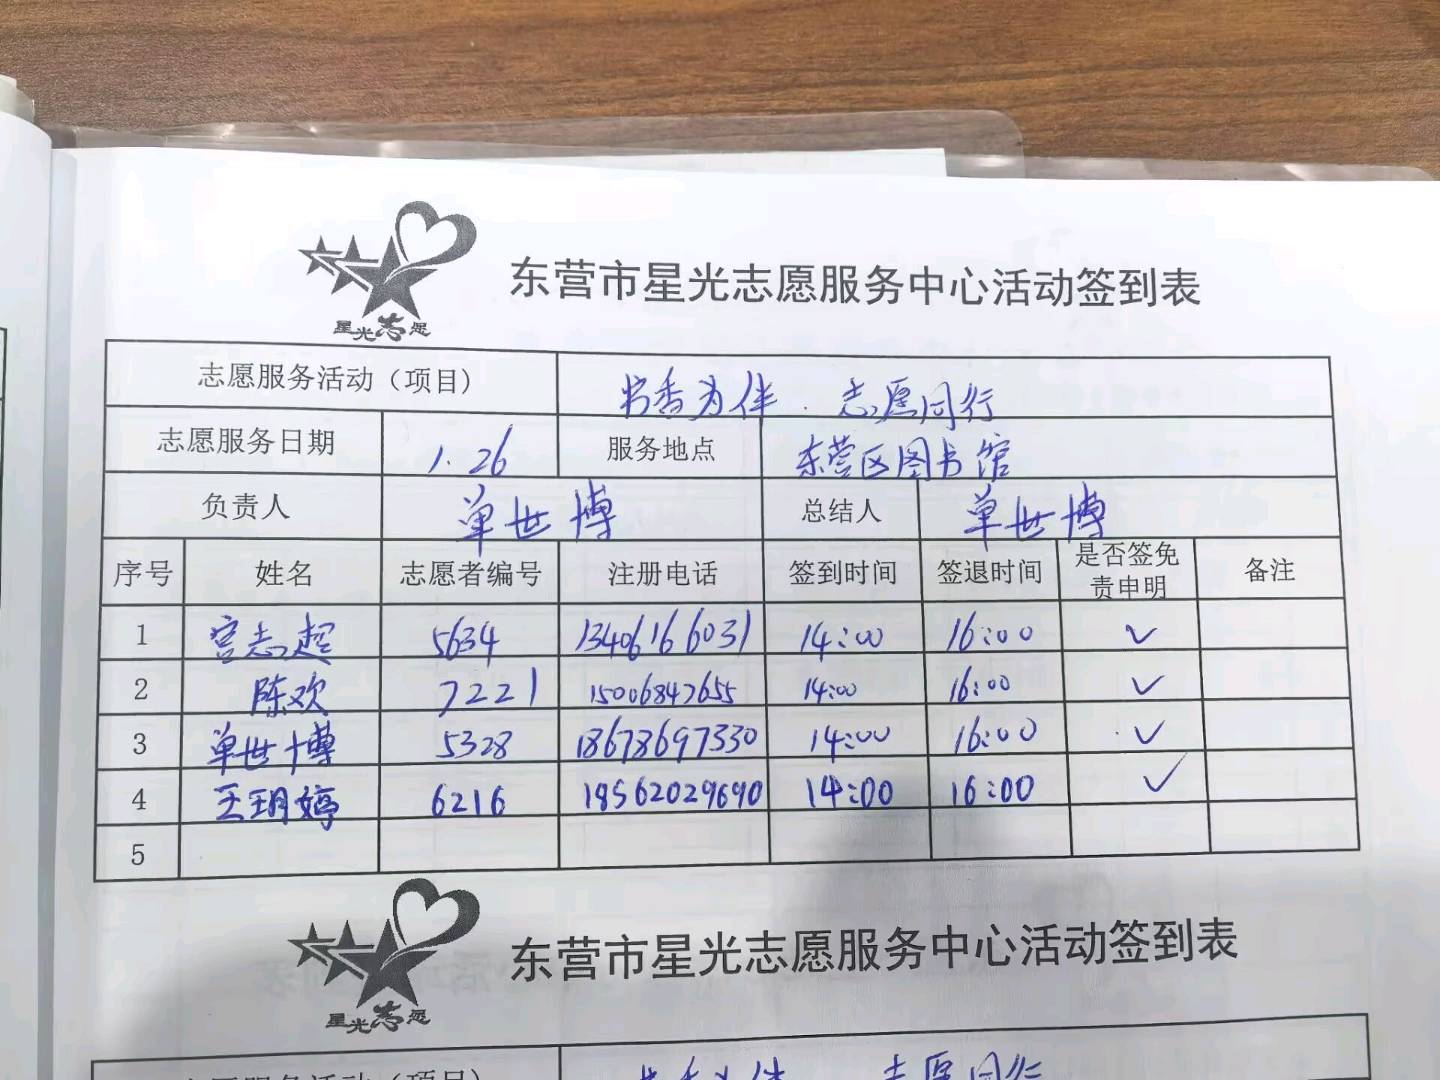 星光志愿
东营市星光志愿服务中心活动签到表
志愿服务活动（项目） 书香为伴 . 志愿同行
志愿服务日期 1.26 服务地点 东营区图书馆
负责人 单世博 总结人 单世博
序号 姓名 志愿者编号 注册电话 签到时间 签退时间 是否签免责申明 备注
1 宫志超 5634 13406166031 14:00 16:00 ✓
2 陈欢 7221 15006847655 14:00 16:00 ✓
3 单世博 5328 18678697330 14:00 16:00 ✓
4 王玥婷 6216 18562029690 14:00 16:00 ✓
5
星光志愿
东营市星光志愿服务中心活动签到表
志愿服务活动（项目） 书香为伴 志愿同行